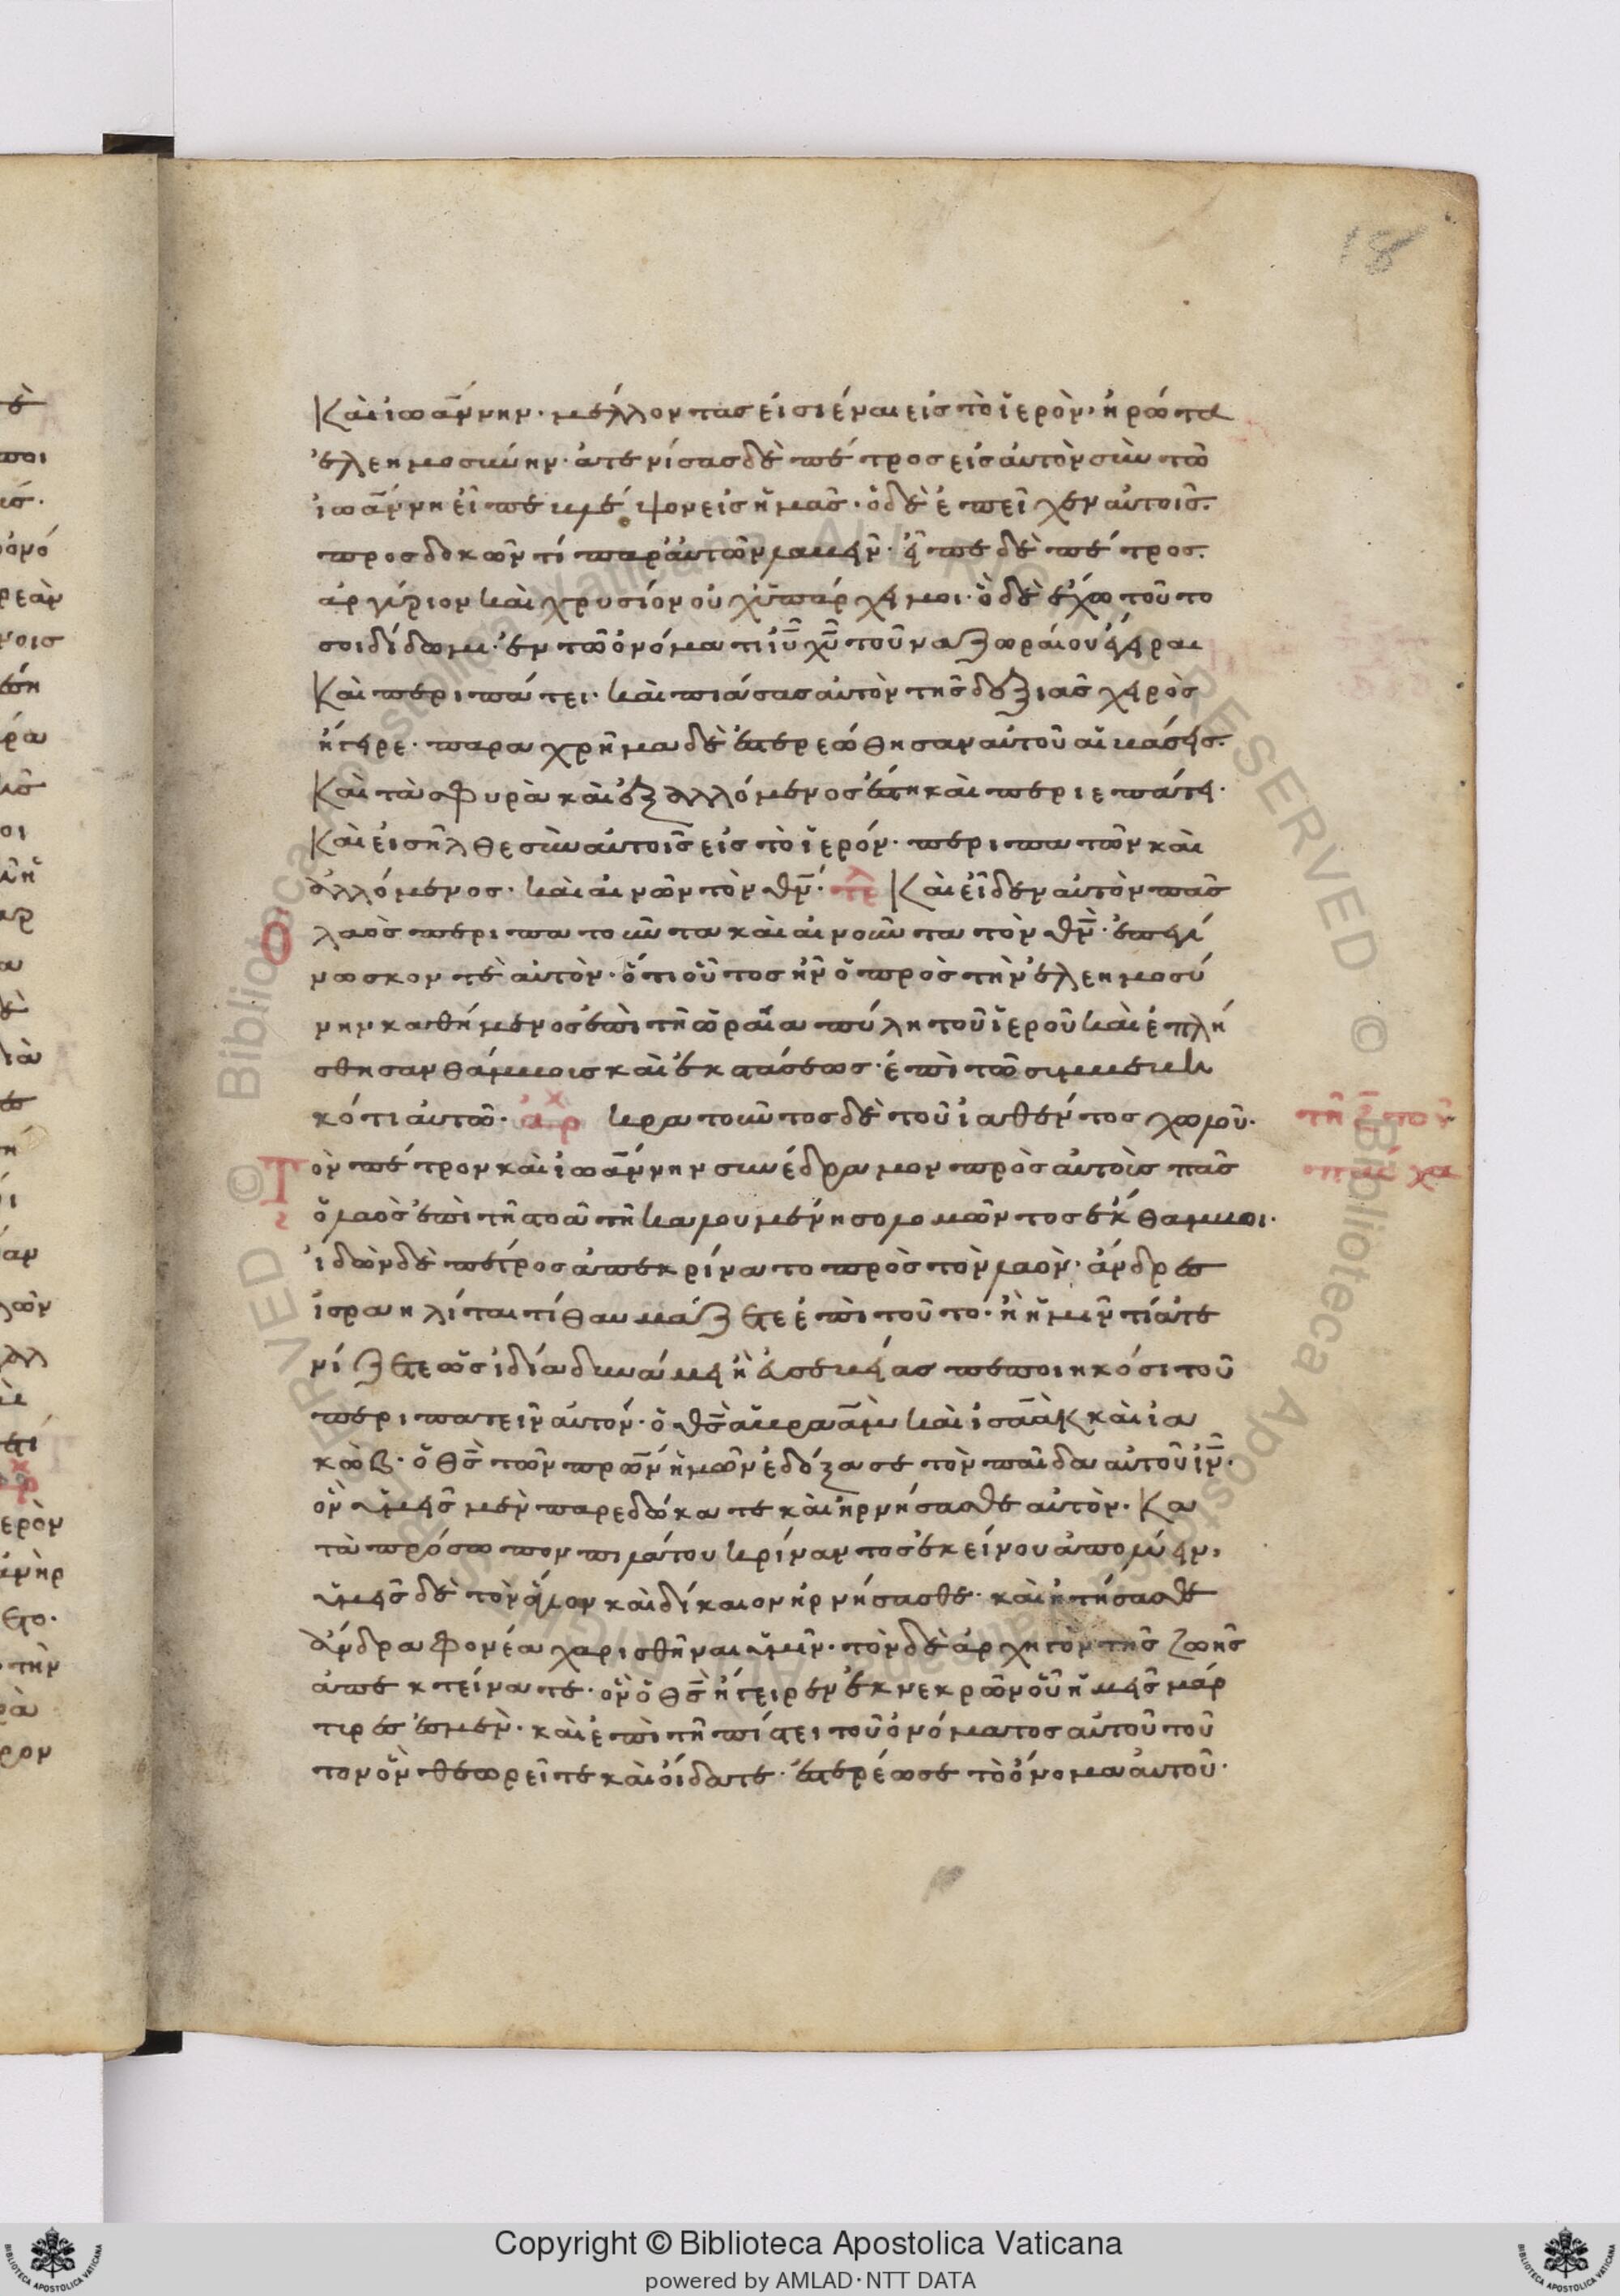 18
Καὶ ἰωάννην· μέλλοντας εἰσιέναι εἰς τὸ ἱερὸν, ἠρώτα
ἐλεημοσύνην· ἀτενίσας δὲ πέτρος εἰς αὐτὸν σὺν τῶ
ἰωάννη εἶπε βλέψον εἰς ἡμᾶς· ὁ δὲ ἐπεῖχεν αὐτοῖς·
προσδοκῶν τί παρ' αὐτῶν λαβεῖν· εἶπε δὲ πέτρος·
ἀργύριον καὶ χρυσίον οὐχ ὑπάρχει μοι· ὃ δὲ ἔχω τοῦτο
σοι δίδωμι· ἐν τῶ ὀνόματι ἰῦ χῦ τοῦ ναζωραίου ἔγειραι
Καὶ περιπάτει· καὶ πιάσας αὐτὸν τῆς δεξιᾶς χειρὸς
ἤγειρε· παραχρῆμα δὲ ἐστερεώθησαν αὐτοῦ αἱ βάσεις·
Καὶ τὰ σφυρὰ καὶ ἐξαλλόμενος ἔστη καὶ περιεπάτει·
Καὶ εἰσῆλθε σὺν αὐτοῖς εἰς τὸ ἱερόν· περιπατῶν καὶ
ἀλλόμενος· καὶ αἰνῶν τὸν θν̄· τε^λ Καὶ εἶδεν αὐτὸν πᾶς
Ὁ λαὸς περιπατοῦντα καὶ αἰνοῦντα τὸν θν̄· ἐπεγί
νωσκον τὲ αὐτὸν· ὅτι οὗτος ἦν ὁ πρὸς τὴν ἐλεημοσύ
νην καθήμενος ἐπὶ τῆ ὡραία πύλη τοῦ ἱεροῦ καὶ ἐπλή
σθησαν θάμβοις καὶ ἐκστάσεως· ἐπὶ τῶ συμβεβη
κότι αὐτῶ· ἀρ^χ κρατοῦντος δὲ τοῦ ἰαθέντος χωλοῦ·
Τὸν πέτρον καὶ ἰωάννην συνέδραμον πρὸς αὐτοὺς πᾶς
ὁ λαὸς ἐπὶ τῆ στοᾶ τῆ καλουμένη σολομῶντος ἔκθαμβοι·
ἰδὼν δὲ πέτρος ἀπεκρίνατο πρὸς τὸν λαὸν· ἄνδρες
ἰσραηλίται τί θαυμάζετε ἐπὶ τοῦτο· ἢ ἡμῖν τί ἀτε
νίζετε ὡς ἰδία δυνάμει ἢ εὐσεβείας πεποιηκόσι τοῦ
περιπατεῖν αὐτόν· ὁ θς̄ ἀβραὰμ καὶ ἰσαὰκ καὶ ἰα
κὼβ· ὁ θς̄ τῶν πρων̄ ἡμῶν ἐδόξασε τὸν παῖδα αὐτοῦ ιν̄·
ὃν ὑμεῖς μὲν παρεδώκατε καὶ ἠρνήσασθε αὐτὸν· Κα
τὰ πρόσωπον πιλάτου κρίναντος ἐκείνου ἀπολύειν,
ὑμεῖς δὲ τὸν ἅγιον καὶ δίκαιον ἠρνήσασθε· καὶ ἠτήσασθε
ἄνδρα φονέα χαρισθῆναι ὑμῖν· τὸν δὲ ἀρχηγὸν τῆς ζωῆς
ἀπεκτείνατε· ὃν ὁ θς̄ ἤγειρεν ἐκ νεκρῶν οὗ ἡμεῖς μάρ
τυρες ἐσμὲν· καὶ ἐπὶ τῆ πίστει τοῦ ὀνόματος αὐτοῦ τοῦ
τον ὃν θεωρεῖτε καὶ οἴδατε· ἐστερέωσε τὸ ὄνομα αὐτοῦ·
Copyright © Biblioteca Apostolica Vaticana
powered by AMLAD·NTT DATA